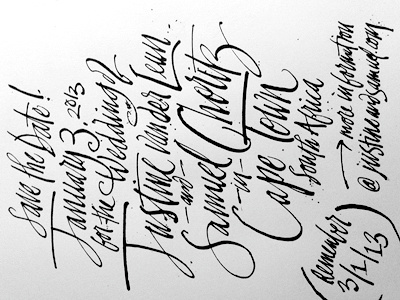 Save the Date!
January 3 2013
for the Wedding of
Justine van der Leun
-and-
Samuel Choritz
-in-
Cape Town
South Africa
→ more information
@ justineandsamuel.com
(Remember
3/1/13)